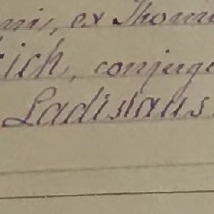 ex Thom
rich, conjuge
Ladislaus.